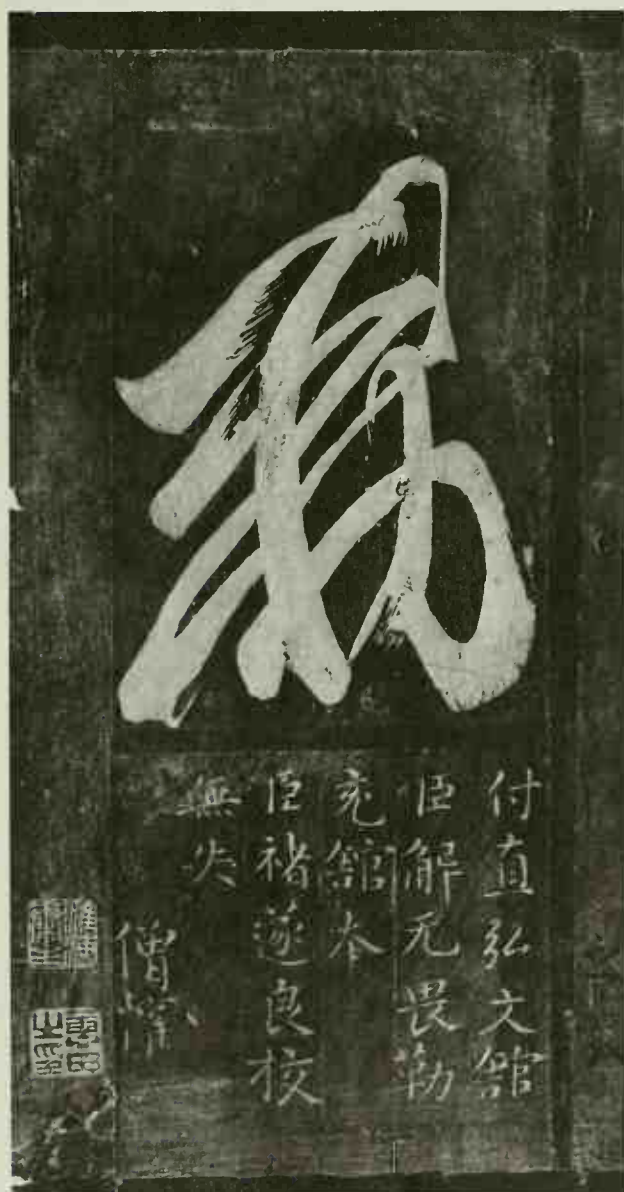 敕
付直弘文館
臣解无畏勒
充館本
臣褚遂良校
無失
僧權